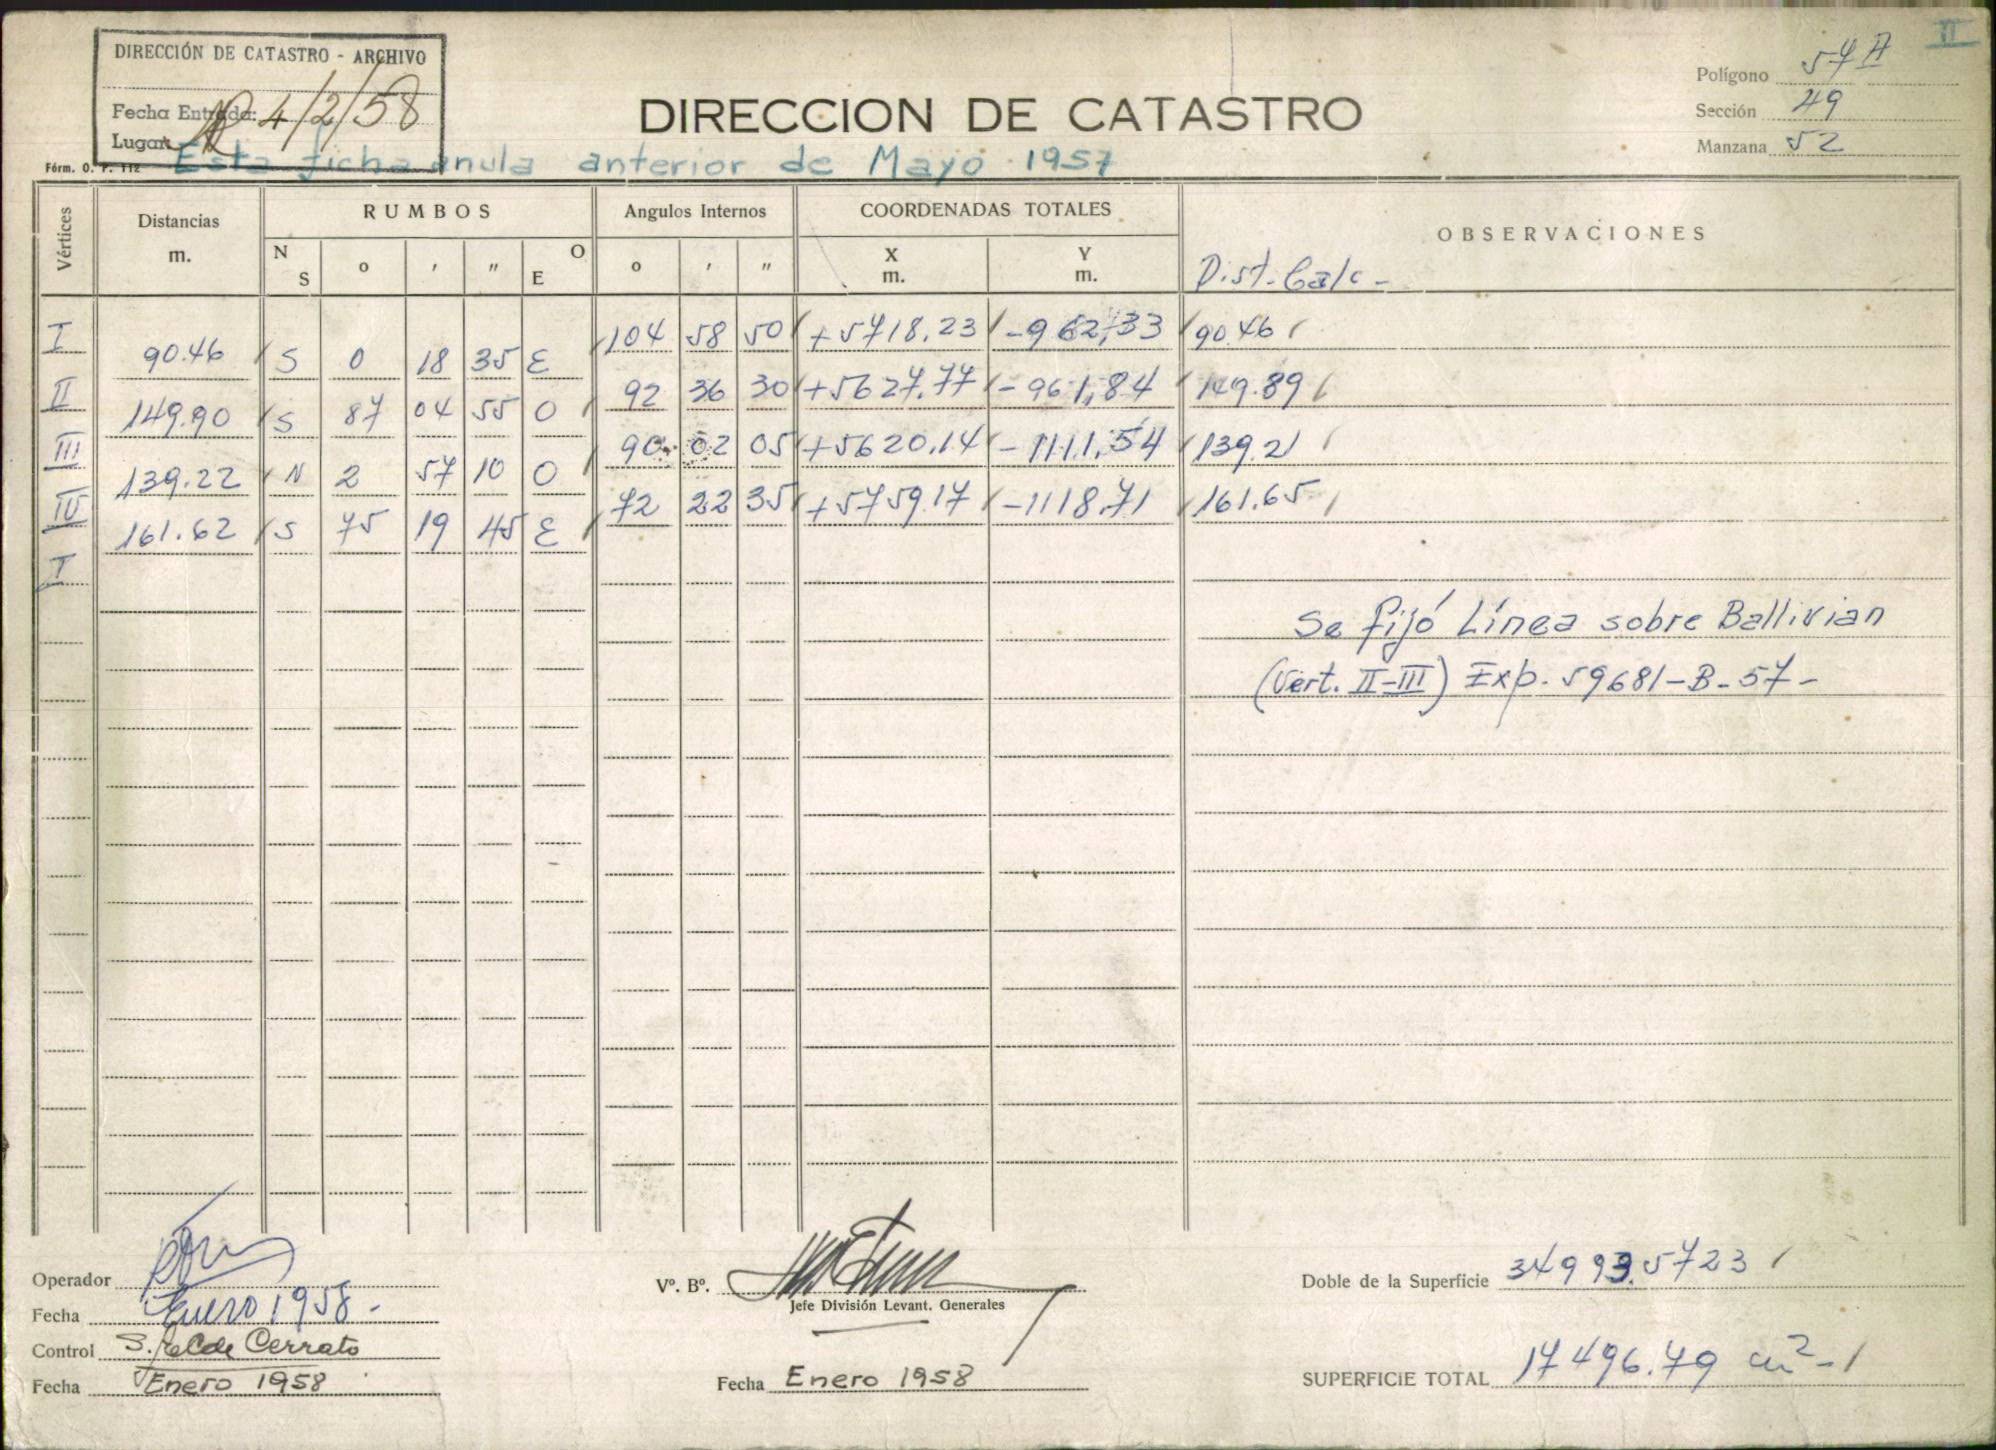 II
DIRECCIÓN DE CATASTRO - ARCHIVO
Fecha Entrada: 4/2/58
Lugar:
DIRECCION DE CATASTRO
Polígono 57 A
Sección 49
Manzana 52
Fórm. O. P. 112
Esta ficha anula anterior de Mayo 1957
Vértices
Distancias m.
RUMBOS
N S o ' " O E
Angulos Internos
o ' "
COORDENADAS TOTALES
X m. Y m.
OBSERVACIONES
Dist. Calc -
I 104 58 50 +5718.23 -962,33 90.46
90.46 S 0 18 35 E
II 92 36 30 +5627.77 -961,84 149.89
149.90 S 87 04 55 O
III 90 02 05 +5620.14 -1111,54 139.21
139.22 N 2 57 10 O
IV 72 22 35 +5759.17 -1118.71 161.65
161.62 S 75 19 45 E
I
Se fijó Línea sobre Ballivian
(Vert. II-III) Exp. 59681-B-57-
Operador
Fecha Enero 1958-
Control S. Cerrato
Fecha Enero 1958
Vº. Bº.
Jefe División Levant. Generales
Fecha Enero 1958
Doble de la Superficie 34993.5723
SUPERFICIE TOTAL 17496.79 m2-